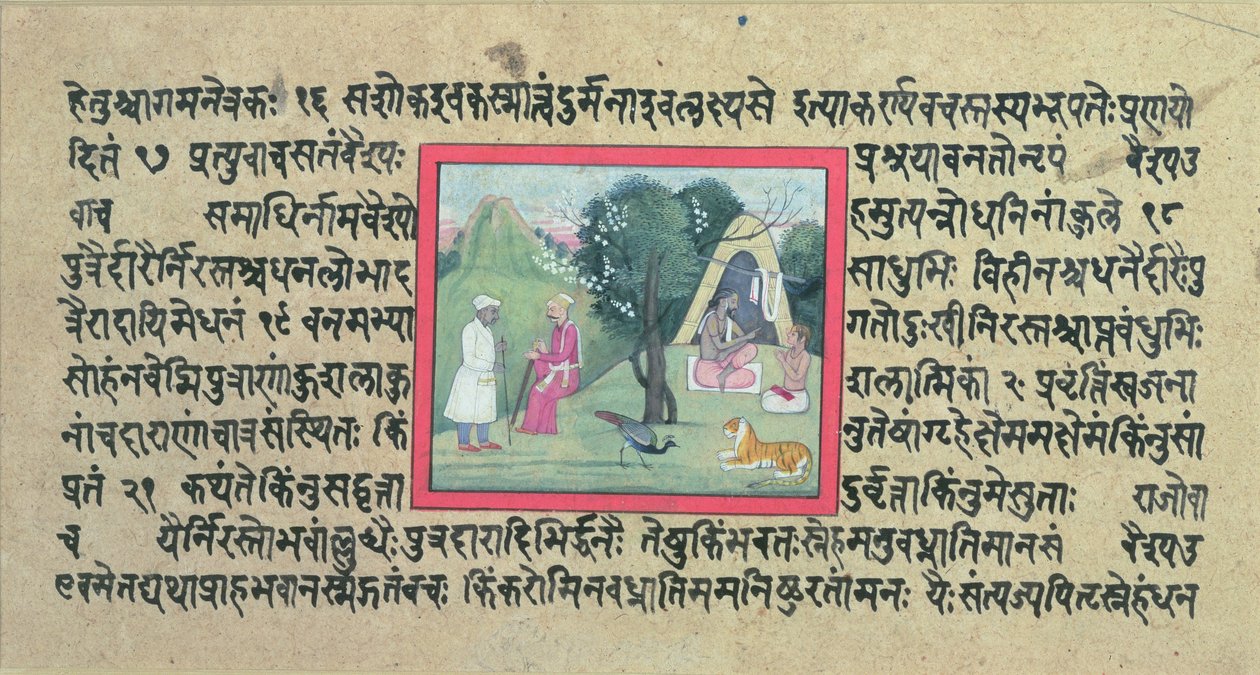 हेतुश्चागमनेत्रकः १६ सशोकइवकस्मात्त्वंदुर्मनाइवलक्ष्यसे इत्याकर्ण्यवचस्तस्यभूपतेःप्रणयो
दितं १७ प्रत्युवाचसतंवैश्यः प्रश्रयावनतोनृपं वैश्यउ
वाच समाधिर्नामवैश्यो हमुत्पन्नोधनिनांकुले १८
पुत्रैर्दारैर्निरस्तश्चधनलोभाद साधुभिः विहीनश्चधनैर्दारैःपु
त्रैरादायिमेधनं १९ वनमभ्या गतोदुःखीनिरस्तश्चाप्तवंधुभिः
सोहंनवेद्मिपुत्राणांकुशलाकु शलात्मिकां २० प्रवृत्तिंस्वजना
नांचदाराणांचात्रसंस्थितः किं नुतेषांगृहेक्षेममक्षेमंकिंनुसां
प्रतं २१ कथंतेकिंनुसद्वृत्ता दुर्वृत्ताकिंनुमेसुताः राजोवा
च यैर्निरस्तोभवांल्लुब्धैःपुत्रदारादिभिर्द्धनैः तेषुकिंभवतःस्नेहमनुवध्नातिमानसं वैश्यउ
एवमेतद्यथाप्राहभवानस्मद्गतंवचः किंकरोमिनवध्नातिममनिष्ठुरतांमनः यैःसंत्यज्यपितृस्नेहंधन